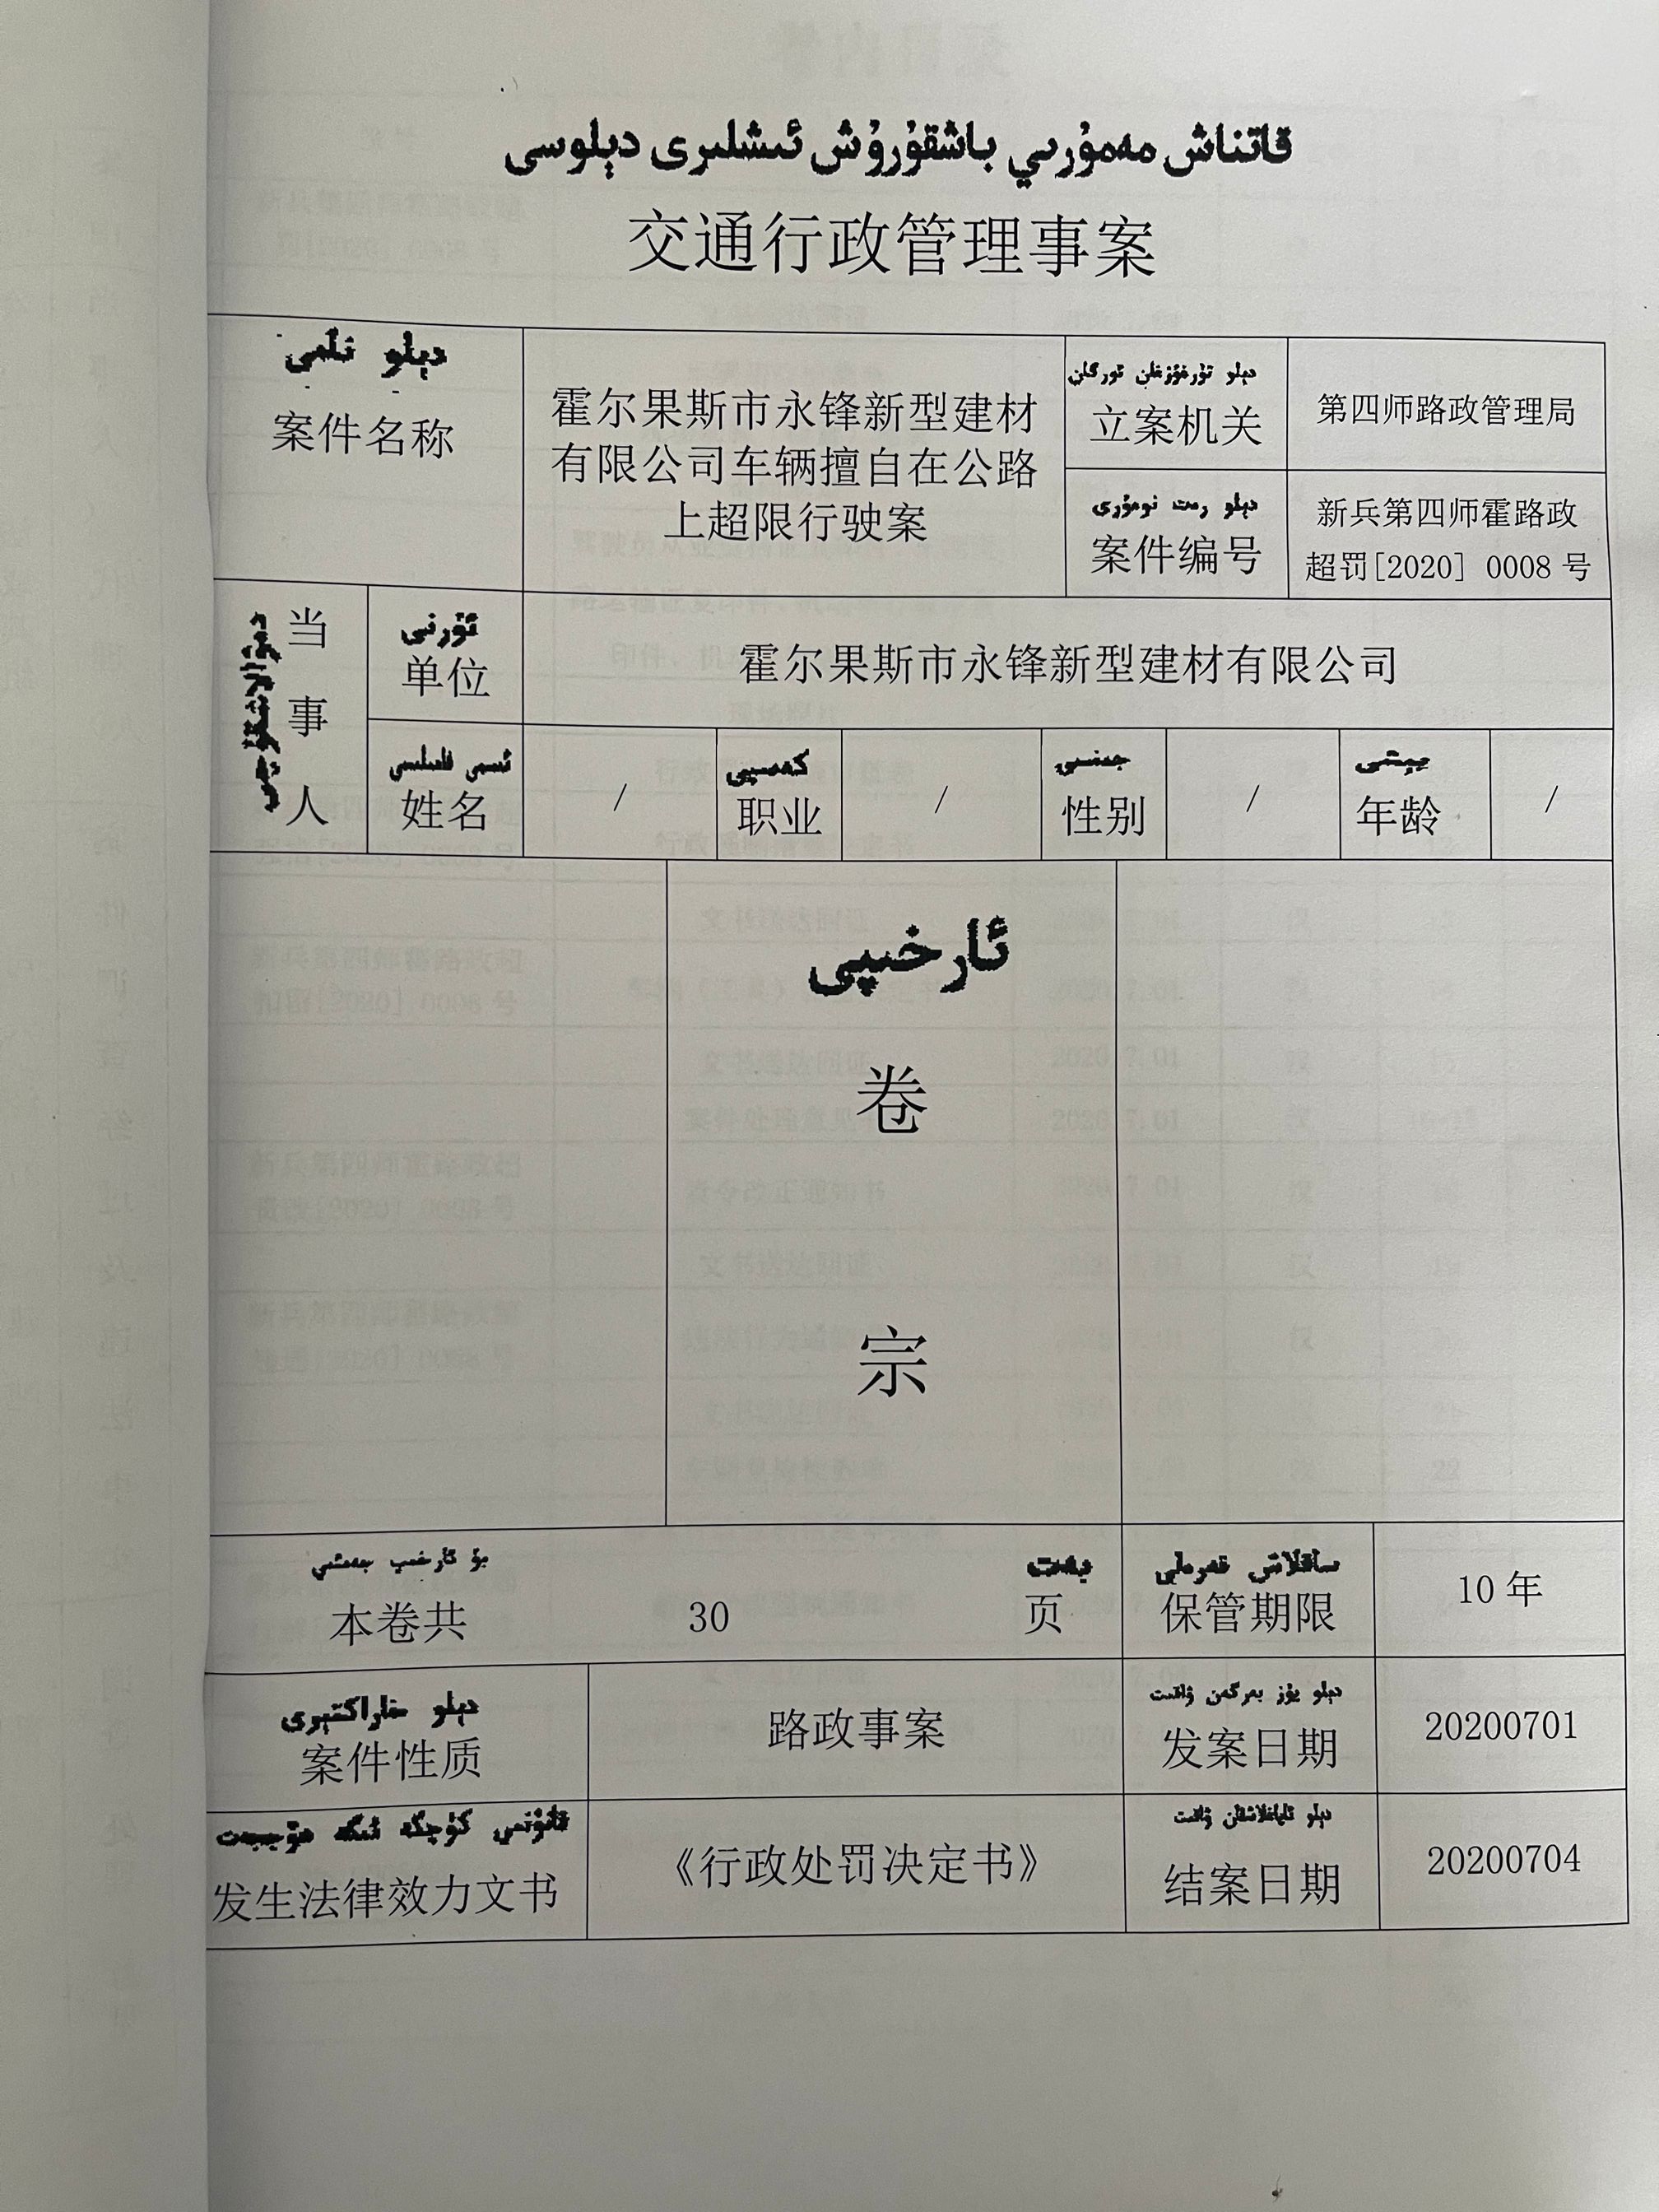 قاتناش مەمۇرىي باشقۇرۇش ئىشلىرى دېلوسى
交通行政管理事案
دېلو نامى
案件名称
霍尔果斯市永锋新型建材
有限公司车辆擅自在公路
上超限行驶案
دېلو تۇرغۇزغان ئورگان
立案机关
第四师路政管理局
دېلو رەت نومۇرى
案件编号
新兵第四师霍路政
超罚[2020] 0008 号
当
事
人
ئورنى
单位
霍尔果斯市永锋新型建材有限公司
ئىسمى فامىلىسى
姓名
/
كەسىپى
职业
/
جىنسى
性别
/
يېشى
年龄
/
ئارخىپى
卷
宗
بۇ ئارخىپ جەمئىي
本卷共
30
بەت
页
ساقلاش قەرەلى
保管期限
10 年
دېلو خاراكتېرى
案件性质
路政事案
دېلو يۈز بەرگەن ۋاقىت
发案日期
20200701
قانۇنىي كۈچگە ئىگە ھۆججەت
发生法律效力文书
《行政处罚决定书》
دېلو ئاياغلاشقان ۋاقىت
结案日期
20200704